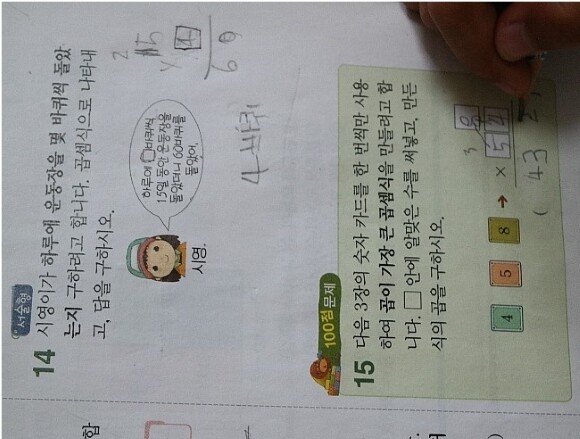 서술형
14 시영이가 하루에 운동장을 몇 바퀴씩 돌았
는지 구하려고 합니다. 곱셈식으로 나타내
고, 답을 구하시오.
하루에 □바퀴씩
15일 동안 운동장을
돌았더니 60바퀴를
돌았어.
시영
2
15
4
60
4바퀴
100점 문제
15 다음 3장의 숫자 카드를 한 번씩만 사용
하여 곱이 가장 큰 곱셈식을 만들려고 합
니다. □ 안에 알맞은 수를 써넣고, 만든
식의 곱을 구하시오.
4 5 8 →
3
8
× 5 4
432
(
합